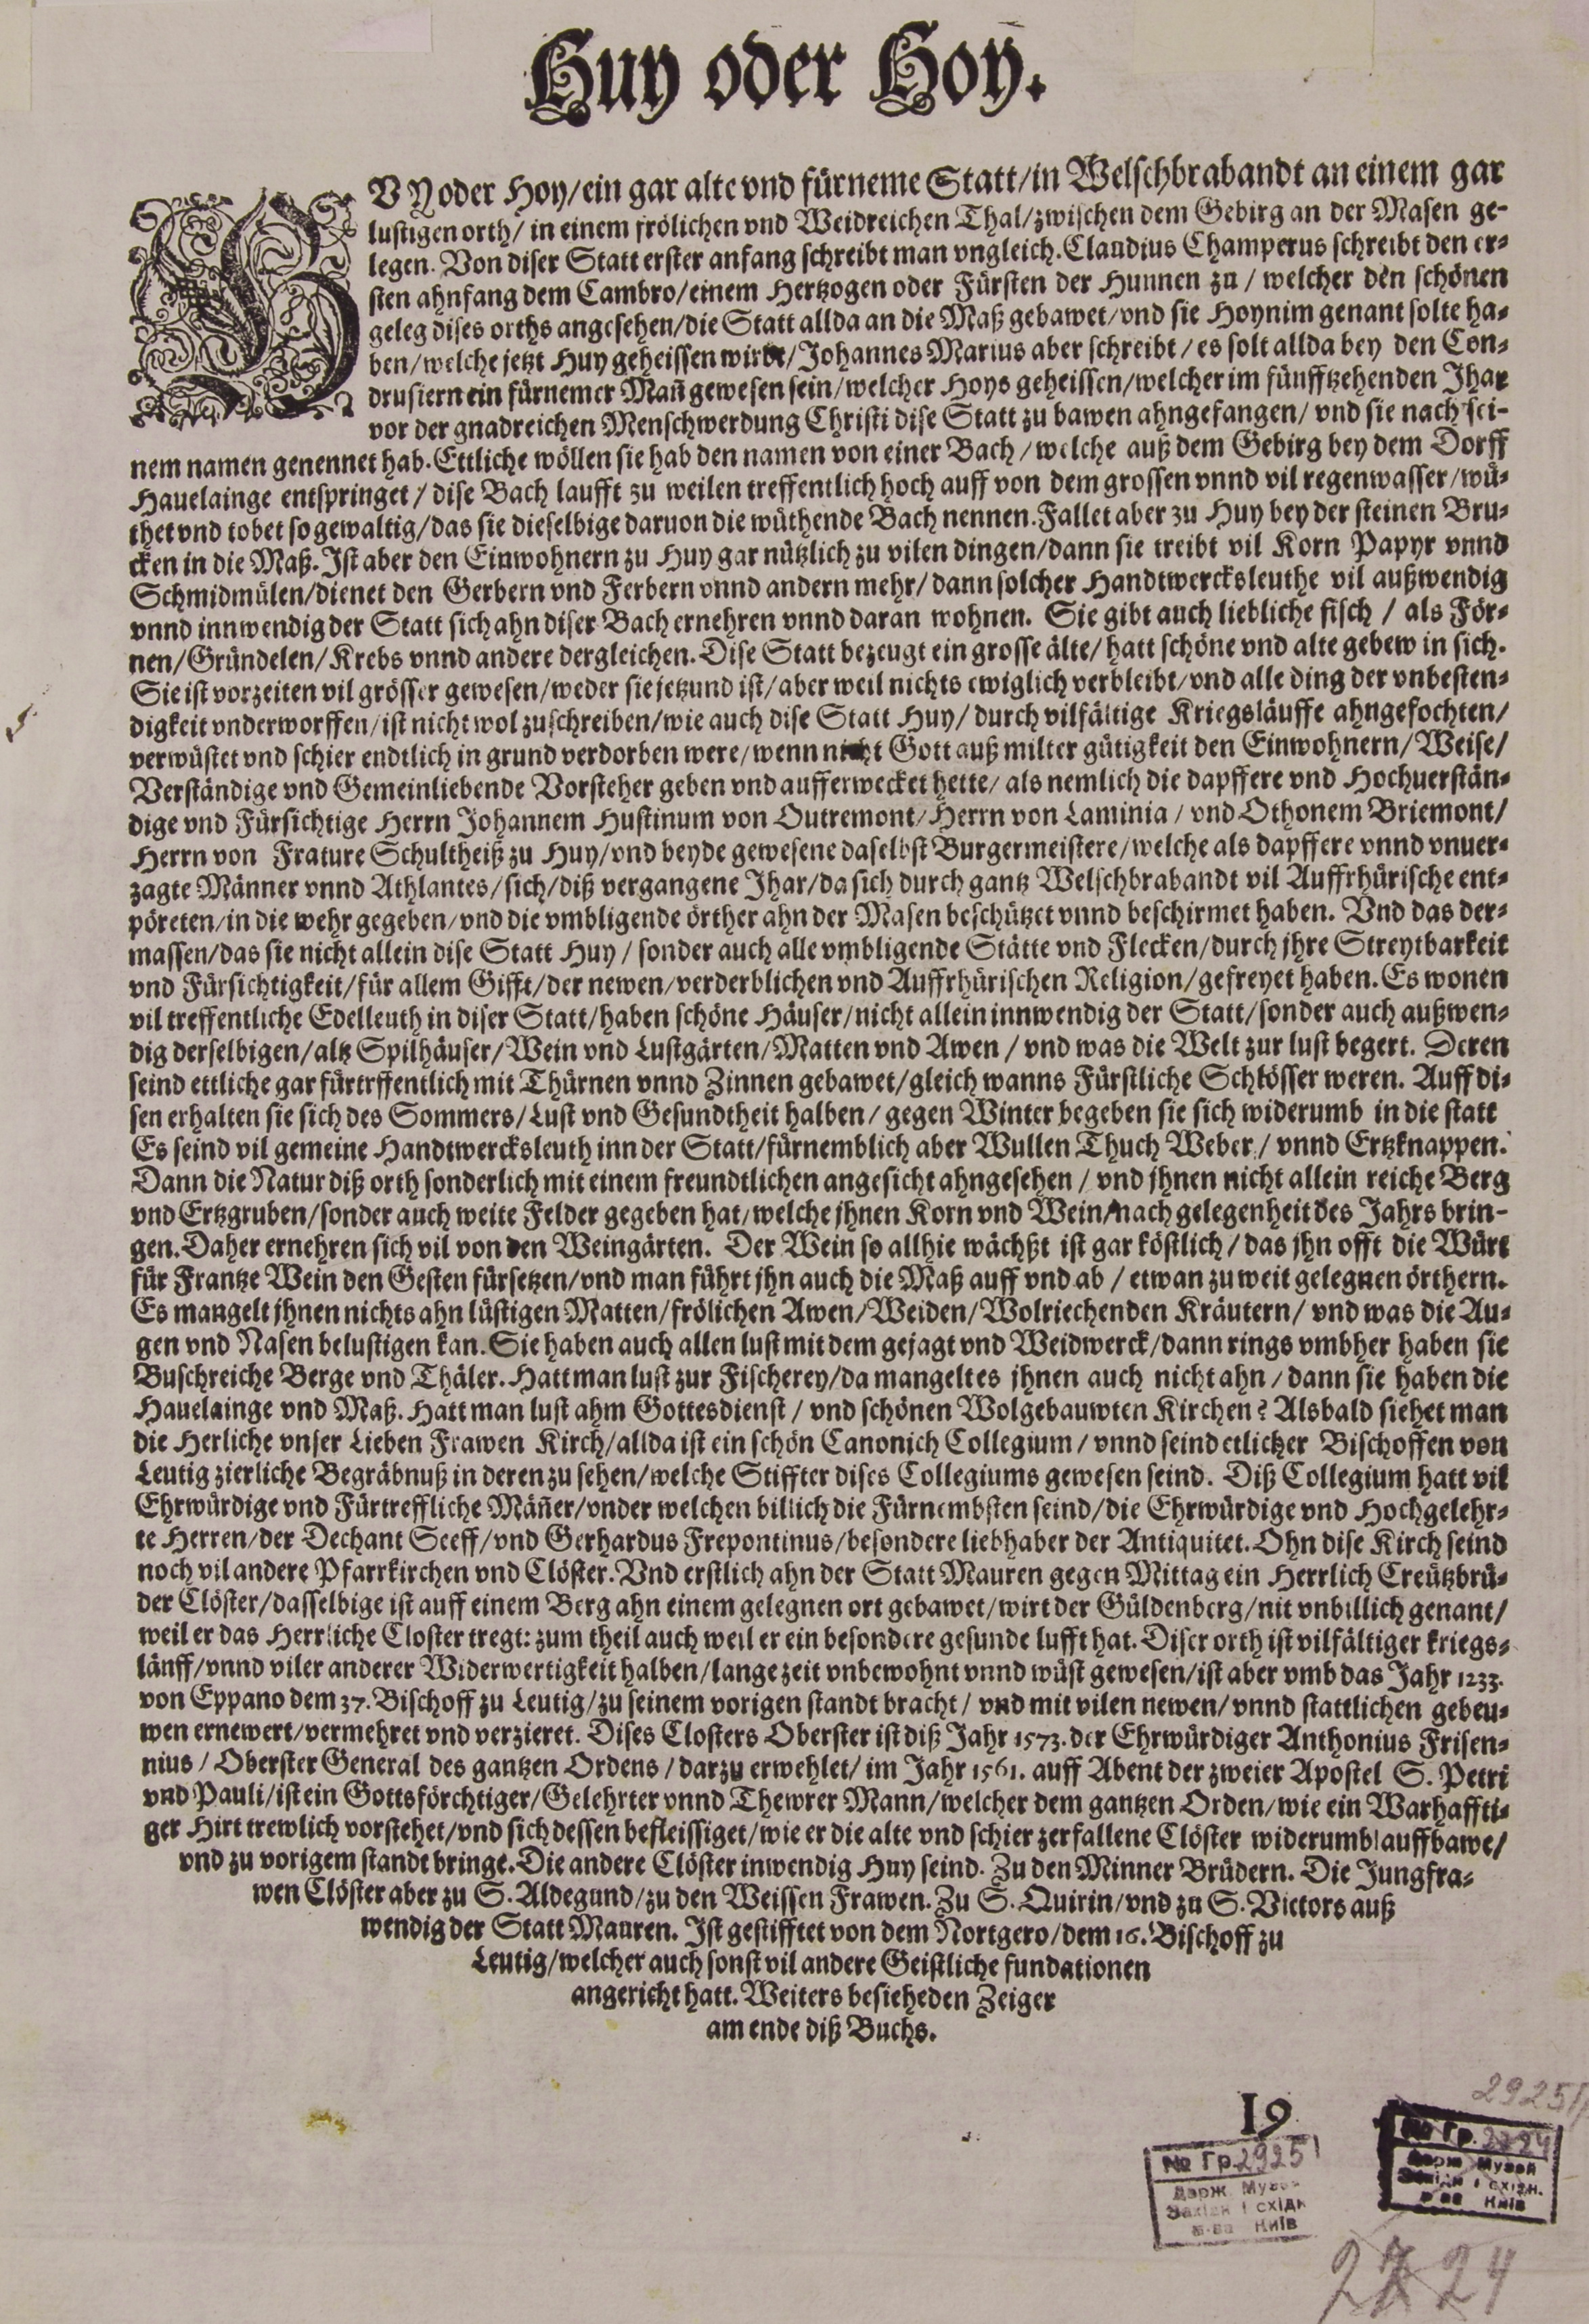 Huy oder Hoy.
HVY oder Hoy/ein gar alte vnd fürneme Statt/in Welschbrabandt an einem gar
lustigen orth/ in einem frölichen vnd Weidreichen Thal/zwischen dem Gebirg an der Masen ge-
legen. Von diser Statt erster anfang schreibt man vngleich. Claudius Champerus schreibt den er-
sten ahnfang dem Cambro/einem Hertzogen oder Fürsten der Hunnen zu / welcher den schönen
geleg dises orths angesehen/die Statt allda an die Maß gebawet/vnd sie Hoynim genant solte ha-
ben/welche jetzt Huy geheissen wirdt/Johannes Marius aber schreibt / es solt allda bey den Con-
drusiern ein fürnemer Mañ gewesen sein/welcher Hoys geheissen/welcher im fünfftzehenden Jhar
vor der gnadreichen Menschwerdung Christi dise Statt zu bawen ahngefangen/ vnd sie nach sei-
nem namen genennet hab. Ettliche wöllen sie hab den namen von einer Bach / welche auß dem Gebirg bey dem Dorff
Hauelainge entspringet / dise Bach laufft zu weilen treffentlich hoch auff von dem grossen vnnd vil regenwasser/wü-
thet vnd tobet so gewaltig/das sie dieselbige daruon die wüthende Bach nennen. Fallet aber zu Huy bey der steinen Bru-
cken in die Maß. Ist aber den Einwohnern zu Huy gar nützlich zu vilen dingen/dann sie treibt vil Korn Papyr vnnd
Schmidmülen/dienet den Gerbern vnd Ferbern vnnd andern mehr/ dann solcher Handtwercksleuthe vil außwendig
vnnd innwendig der Statt sich ahn diser Bach ernehren vnnd daran wohnen. Sie gibt auch liebliche fisch / als För-
nen/Gründelen/Krebs vnnd andere dergleichen. Dise Statt bezeugt ein grosse älte/ hatt schöne vnd alte gebew in sich.
Sie ist vorzeiten vil grösser gewesen/weder sie jetzund ist/aber weil nichts ewiglich verbleibt/vnd alle ding der vnbesten-
digkeit vnderworffen/ist nicht wol zuschreiben/wie auch dise Statt Huy/ durch vilfältige Kriegsläuffe ahngefochten/
verwüstet vnd schier endtlich in grund verdorben were/wenn nicht Gott auß milter gütigkeit den Einwohnern/Weise/
Verständige vnd Gemeinliebende Vorsteher geben vnd aufferwecket hette/ als nemlich die dapffere vnd Hochuerstän-
dige vnd Fürsichtige Herrn Johannem Hustinum von Outremont/Herrn von Laminia / vnd Othonem Briemont/
Herrn von Frature Schultheiß zu Huy/vnd beyde gewesene daselbst Burgermeistere/welche als dapffere vnnd vnuer-
zagte Männer vnnd Athlantes/sich/diß vergangene Jhar/da sich durch gantz Welschbrabandt vil Auffrhürische ent-
pöreten/in die wehr gegeben/vnd die vmbligende örther ahn der Masen beschützet vnnd beschirmet haben. Vnd das der-
massen/das sie nicht allein dise Statt Huy / sonder auch alle vmbligende Stätte vnd Flecken/durch jhre Streytbarkeit
vnd Fürsichtigkeit/für allem Gifft/der newen/verderblichen vnd Auffrhürischen Religion/gefreyet haben. Es wonen
vil treffentliche Edelleuth in diser Statt/haben schöne Häuser/nicht allein innwendig der Statt/sonder auch außwen-
dig derselbigen/altz Spilhäuser/Wein vnd Lustgärten/Matten vnd Awen / vnd was die Welt zur lust begert. Deren
seind ettliche gar fürtrffentlich mit Thürnen vnnd Zinnen gebawet/gleich wanns Fürstliche Schlösser weren. Auff di-
sen erhalten sie sich des Sommers/Lust vnd Gesundtheit halben / gegen Winter begeben sie sich widerumb in die statt
Es seind vil gemeine Handtwercksleuth inn der Statt/fürnemblich aber Wullen Thuch Weber / vnnd Ertzknappen.
Dann die Natur diß orth sonderlich mit einem freundtlichen angesicht ahngesehen / vnd jhnen nicht allein reiche Berg
vnd Ertzgruben/sonder auch weite Felder gegeben hat/welche jhnen Korn vnd Wein/nach gelegenheit des Jahrs brin-
gen. Daher ernehren sich vil von den Weingärten. Der Wein so allhie wächßt ist gar köstlich / das jhn offt die Würt
für Frantze Wein den Gesten fürsetzen/vnd man führt jhn auch die Maß auff vnd ab / etwan zu weit gelegnen örthern.
Es mangelt jhnen nichts ahn lüstigen Matten/frölichen Awen/Weiden/Wolriechenden Kräutern/ vnd was die Au-
gen vnd Nasen belustigen kan. Sie haben auch allen lust mit dem gejagt vnd Weidwerck/dann rings vmbher haben sie
Buschreiche Berge vnd Thäler. Hatt man lust zur Fischerey/da mangelt es jhnen auch nicht ahn / dann sie haben die
Hauelainge vnd Maß. Hatt man lust ahm Gottesdienst / vnd schönen Wolgebauwten Kirchen? Alsbald siehet man
die Herliche vnser Lieben Frawen Kirch/allda ist ein schön Canonich Collegium / vnnd seind etlicher Bischoffen von
Leutig zierliche Begräbnuß in deren zu sehen/welche Stiffter dises Collegiums gewesen seind. Diß Collegium hatt vil
Ehrwürdige vnd Fürtreffliche Mäñer/vnder welchen billich die Fürnembsten seind/die Ehrwürdige vnd Hochgelehr-
te Herren/der Dechant Seeff/vnd Gerhardus Frepontinus/besondere liebhaber der Antiquitet. Ohn dise Kirch seind
noch vil andere Pfarrkirchen vnd Clöster. Vnd erstlich ahn der Statt Mauren gegen Mittag ein Herrlich Creützbrü-
der Clöster/dasselbige ist auff einem Berg ahn einem gelegnen ort gebawet/wirt der Güldenberg/nit vnbillich genant/
weil er das Herrliche Closter tregt: zum theil auch weil er ein besondere gesunde lufft hat. Diser orth ist vilfältiger kriegs-
länff/vnnd viler anderer Widerwertigkeit halben/lange zeit vnbewohnt vnnd wüst gewesen/ist aber vmb das Jahr 1233.
von Eppano dem 37. Bischoff zu Leutig/zu seinem vorigen standt bracht / vnd mit vilen newen/ vnnd stattlichen gebeu-
wen ernewert/vermehret vnd verzieret. Dises Closters Oberster ist diß Jahr 1573. der Ehrwürdiger Anthonius Frisen-
nius / Oberster General des gantzen Ordens / darzu erwehlet/ im Jahr 1561. auff Abent der zweier Apostel S. Petri
vnd Pauli/ist ein Gottsförchtiger/Gelehrter vnnd Thewrer Mann/welcher dem gantzen Orden/wie ein Warhaffti-
ger Hirt trewlich vorstehet/vnd sich dessen befleissiget/wie er die alte vnd schier zerfallene Clöster widerumb auffbawe/
vnd zu vorigem standt bringe. Die andere Clöster inwendig Huy seind. Zu den Minner Brüdern. Die Jungfra-
wen Clöster aber zu S. Aldegund/zu den Weissen Frawen. Zu S. Quirin/vnd zu S. Victors auß
wendig der Statt Mauren. Ist gestifftet von dem Nortgero/dem 16. Bischoff zu
Leutig/welcher auch sonst vil andere Geistliche fundationen
angericht hatt. Weiters besiehe den Zeiger
am ende diß Buchs.
19
2925
№ Гр. 2925
Держ. Музей
Західн і східн
м-ва Київ
№ Гр. 2724
Держ Музей
Західн і східн.
м-ва Київ
2724